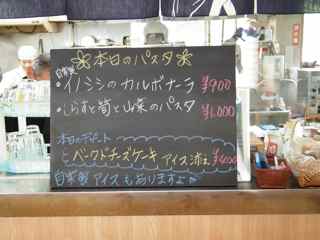 本日のパスタ
自家製
・イノシシのカルボナーラ ¥900
・しらすと筍と山菜のパスタ ¥1,000
本日のデザート
ベークドチーズケーキ アイス添え ¥400
自家製アイスもありますよ